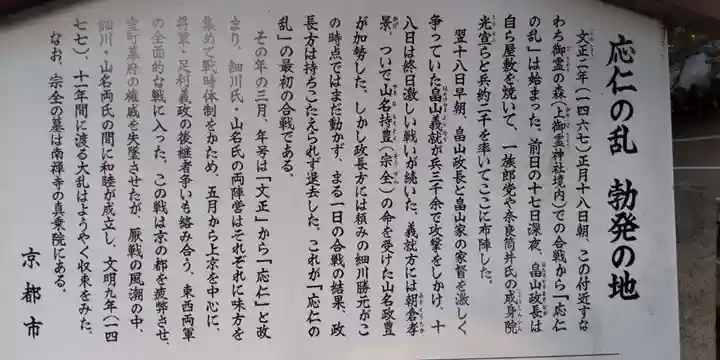 応仁の乱 勃発の地
文正二年(一四六七)正月十八日朝、この付近すな
わち御霊の森(上御霊神社境内)での合戦から「応仁
の乱」は始まった。前日の十七日深夜、畠山政長は
自ら屋敷を焼いて、一族郎党や奈良筒井氏の成身院
光宣らと兵約二千を率いてここに布陣した。
翌十八日早朝、畠山政長と畠山家の家督を激しく
争っていた畠山義就が兵三千余で攻撃をしかけ、十
八日は終日激しい戦いが続いた。義就方には朝倉孝
景、ついで山名持豊(宗全)の命を受けた山名政豊
が加勢した。しかし政長方には頼みの細川勝元がこ
の時点ではまだ動かず、まる一日の合戦の結果、政
長方は持ちこたえられず退去した。これが「応仁の
乱」の最初の合戦である。
その年の三月、年号は「文正」から「応仁」と改
まり、細川氏、山名氏の両陣営はそれぞれに味方を
集めて戦時体制をかため、五月から上京を中心に、
将軍・足利義政の後継者争いも絡み合う、東西両軍
の全面的な戦に入った。この戦は京の都を疲弊させ、
室町幕府の権威を失墜させたが、厭戦の風潮の中、
細川・山名両氏の間に和睦が成立し、文明九年(一四
七七)、十一年間に渡る大乱はようやく収束をみた。
なお、宗全の墓は南禅寺の真乗院にある。
京都市